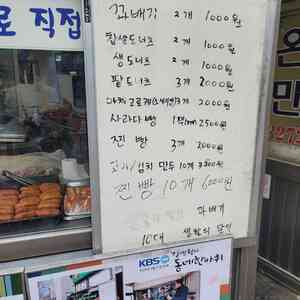 로 직접
꽈배기 2개 1000원
찹쌀도너츠 2개 1000원
생도너츠 2개 1000원
팥도너츠 3개 2000원
야채고로케 3개 2000원
사라다빵 1개 2500원
찐빵 3개 2000원
고기/김치 만두 10개
찐빵 10개 6000원
꽈배기
10대 생활의 달인
KBS
동네한바퀴
온
만